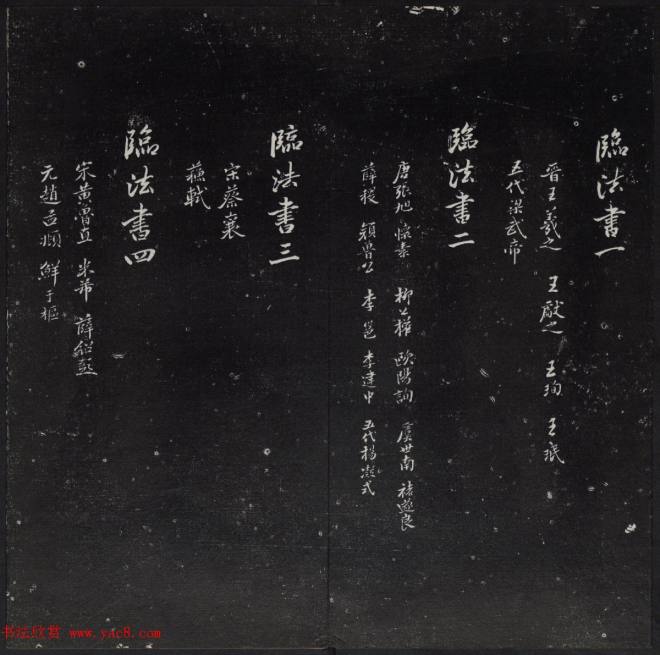 臨法書一
晋王羲之 王献之 王珣 王珉
五代梁武帝
臨法書二
唐張旭 懐素 柳公權 歐陽詢 虞世南 褚遂良
薛稷 顔魯公 李邕 李建中 五代楊凝式
臨法書三
宋蔡襄
蘇軾
臨法書四
宋黄魯直 米芾 薛紹彭
元趙孟頫 鮮于樞
书法欣赏 www.yac8.com